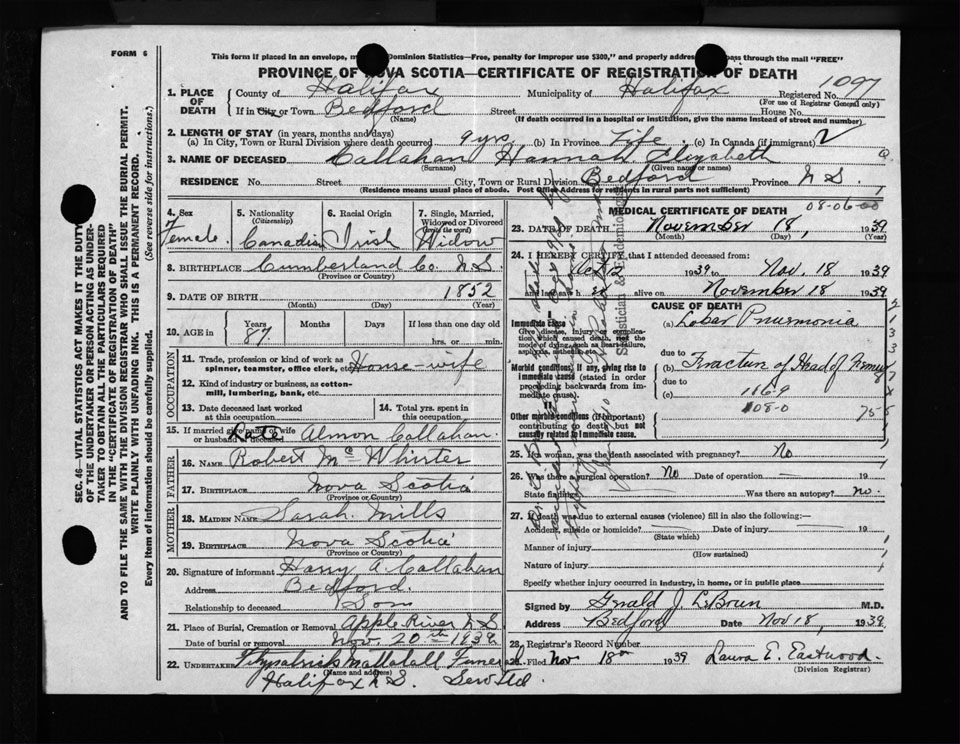 FORM 6
This form if placed in an envelope, Dominion Statistics—Free, penalty for improper use $300," and properly pass through the mail "FREE"
PROVINCE OF NOVA SCOTIA—CERTIFICATE OF REGISTRATION OF DEATH
1097
1. PLACE OF DEATH
County of Halifax Municipality of Halifax Registered No.
(For use of Registrar General only)
If in City or Town Bedford Street House No.
(Name) (If death occurred in a hospital or institution, give the name instead of street and number)
2. LENGTH OF STAY (in years, months and days)
(a) In City, Town or Rural Division where death occurred 9 yrs (b) In Province Life (c) In Canada (if immigrant)
3. NAME OF DECEASED Callahan Hannah Elizabeth
(Surname) (Given name or names)
RESIDENCE No. Street City, Town or Rural Division Bedford Province N.S.
(Residence means usual place of abode. Post Office Address for residents in rural parts not sufficient)
08-06-00
4. Sex
Female
5. Nationality
(Citizenship)
Canadian
6. Racial Origin
Irish
7. Single, Married, Widowed or Divorced
(write the word)
Widow
8. BIRTHPLACE Cumberland Co. N.S.
(Province or Country)
9. DATE OF BIRTH 1852
(Month) (Day) (Year)
10. AGE in Years Months Days If less than one day old
87 hrs. or min.
OCCUPATION
11. Trade, profession or kind of work as
spinner, teamster, office clerk, etc. House-wife
12. Kind of industry or business, as cotton-
mill, lumbering, bank, etc.
13. Date deceased last worked
at this occupation
14. Total yrs. spent in
this occupation
15. If married give name of wife
or husband of deceased Late Almon Callahan.
FATHER
16. NAME Robert McWhirter
17. BIRTHPLACE Nova Scotia
(Province or Country)
MOTHER
18. MAIDEN NAME Sarah Mills
19. BIRTHPLACE Nova Scotia
(Province or Country)
20. Signature of informant Harry A. Callahan
Address Bedford.
Relationship to deceased Son
21. Place of Burial, Cremation or Removal Apple River N.S.
Date of burial or removal Nov. 20th 1939
22. UNDERTAKER Fitzpatrick Funeral
(Name and address)
Halifax N.S. Serv Ltd.
MEDICAL CERTIFICATE OF DEATH
23. DATE OF DEATH November 18, 1939
(Month) (Day) (Year)
24. I HEREBY CERTIFY that I attended deceased from:
1939 to Nov. 18 1939
and last saw h er alive on November 18 1939
CAUSE OF DEATH
Immediate cause
Give disease, injury or complica-
tion which caused death, not the
mode of dying, such as heart failure,
asphyxia, asthenia, etc.
(a) Lobar Pneumonia
due to
Morbid conditions, if any, giving rise to
immediate cause (stated in order
proceeding backwards from im-
mediate cause).
(b) Fracture of Head of Femur
due to
(c) 1169
108-0
Other morbid conditions (if important)
contributing to death but not
causally related to immediate cause.
25. If a woman, was the death associated with pregnancy? No
26. Was there a surgical operation? No Date of operation 19
State findings Was there an autopsy? no.
27. If death was due to external causes (violence) fill in also the following:—
Accident, suicide or homicide? Date of injury 19
(State which)
Manner of injury
(How sustained)
Nature of injury
Specify whether injury occurred in industry, in home, or in public place
Signed by Gerald J. LeBrun M.D.
Address Bedford Date Nov 18, 1939
28. Registrar's Record Number
29. Filed Nov 18th 1939 Laura E. Eastwood.
(Division Registrar)
SEC. 46—VITAL STATISTICS ACT MAKES IT THE DUTY
OF THE UNDERTAKER OR PERSON ACTING AS UNDER-
TAKER TO OBTAIN ALL THE PARTICULARS REQUIRED
IN THE "CERTIFICATE OF REGISTRATION OF DEATH"
AND TO FILE THE SAME WITH THE DIVISION REGISTRAR WHO SHALL ISSUE THE BURIAL PERMIT.
WRITE PLAINLY WITH UNFADING INK. THIS IS A PERMANENT RECORD.
Every item of information should be carefully supplied. (See reverse side for instructions.)
Statistician & Epidemiologist